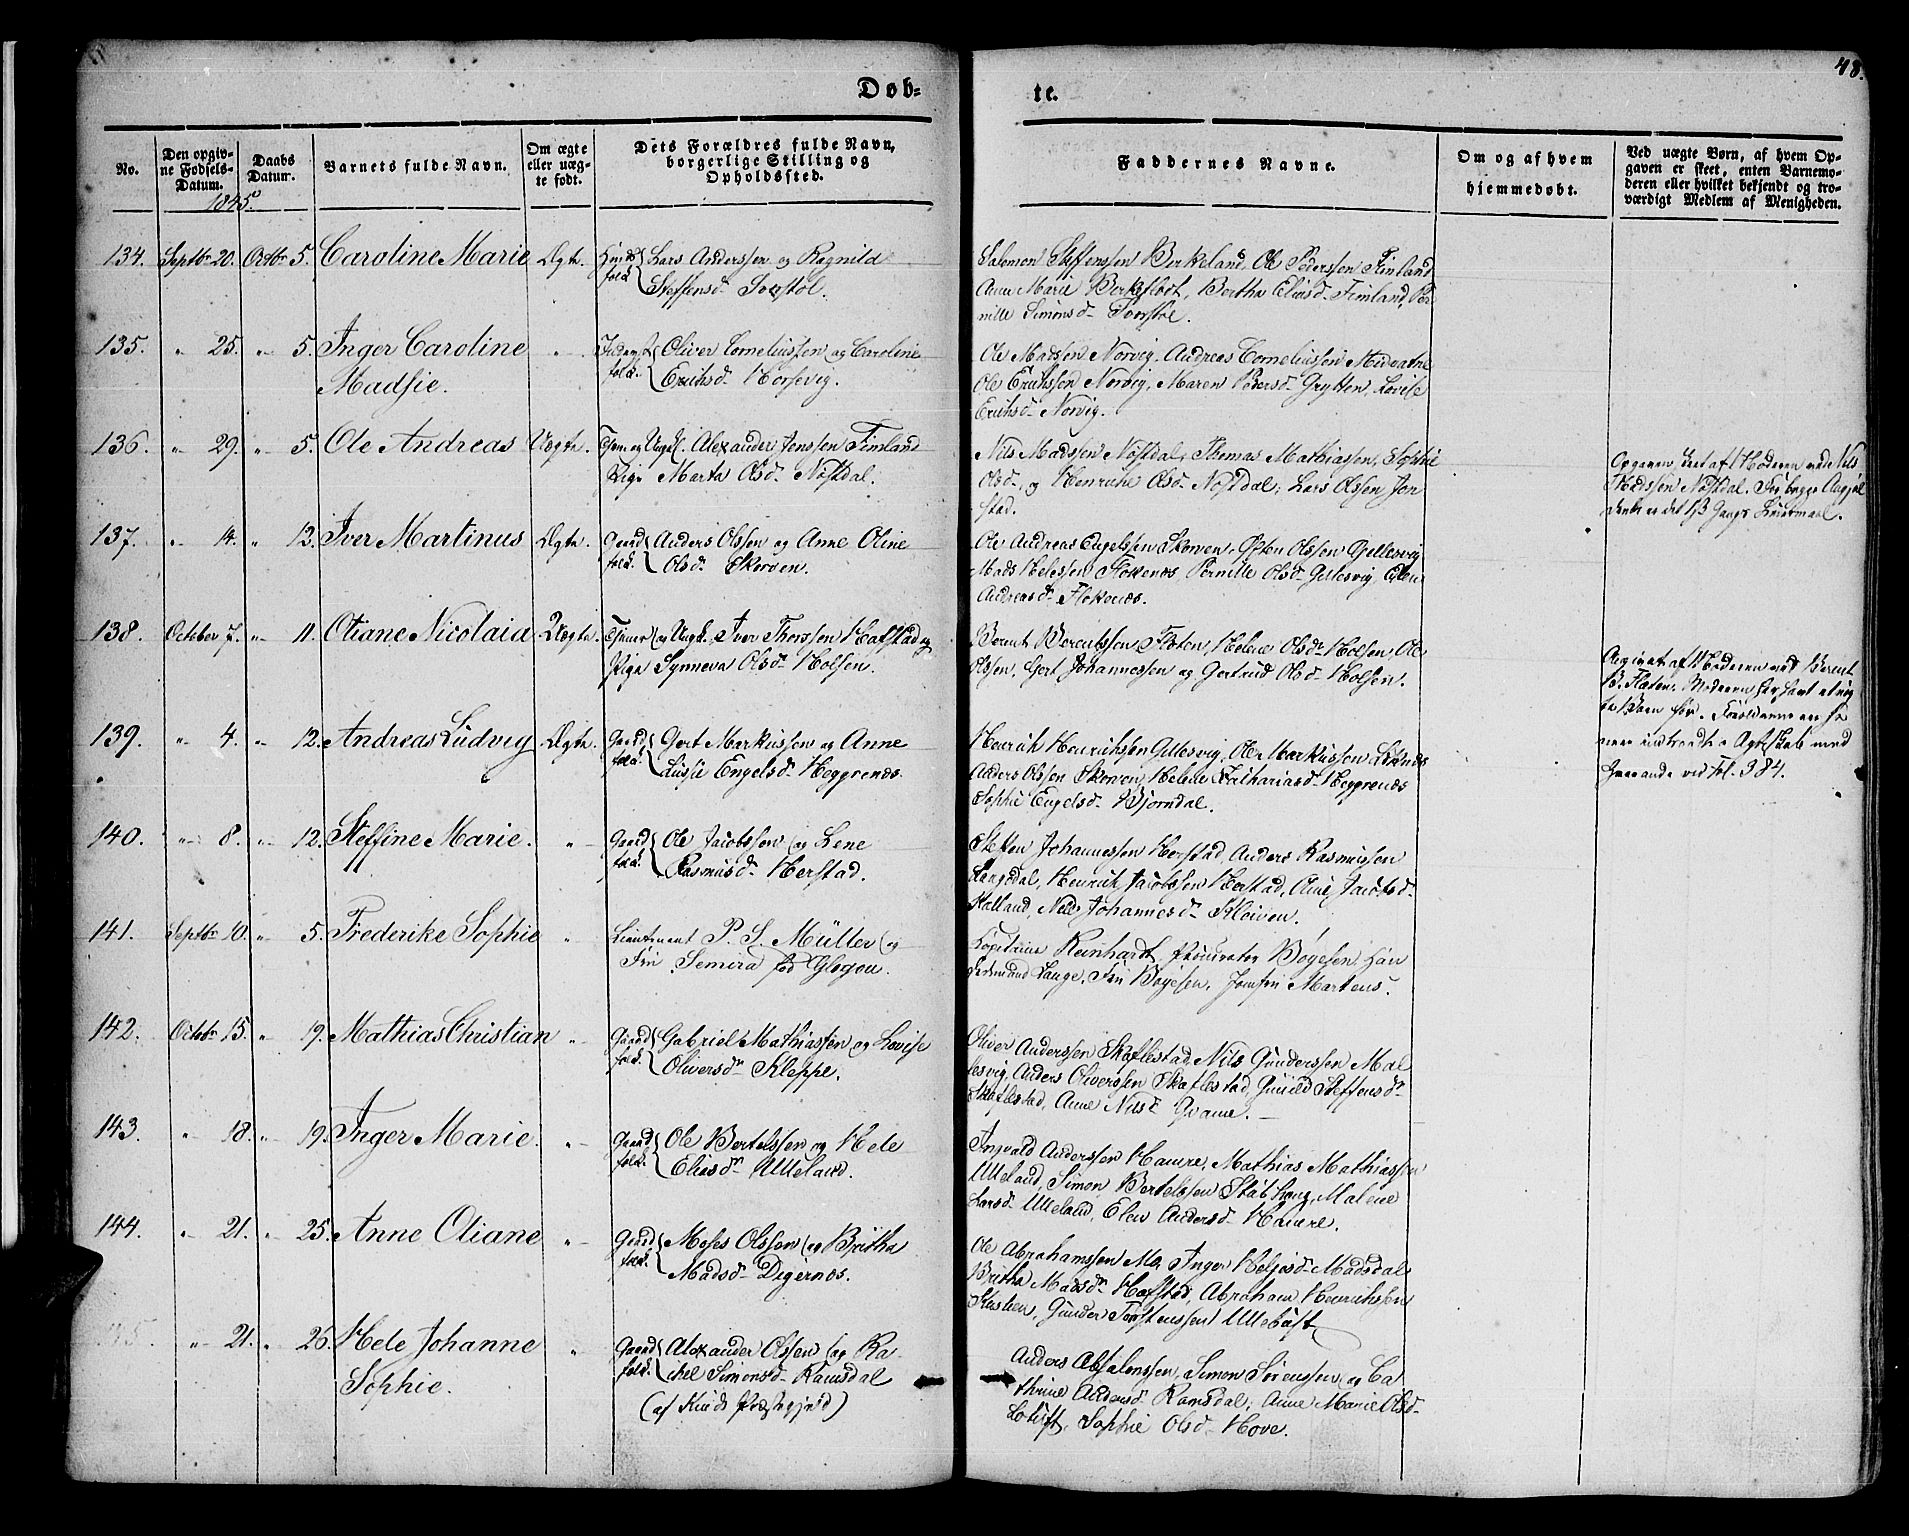 48.
Døb=
te.
No.
Den opgiv-
ne Fødsels-
Datum.
Daabs
Datum.
Barnets fulde Navn.
Om ægte
eller uæg-
te født.
Dets Forældres fulde Navn,
borgerlige Stilling og
Opholdssted.
Faddernes Navne.
Om og af hvem
hjemmedøbt.
Ved uægte Børn, af hvem Op-
gaven er skeet, enten Barnemo-
deren eller hvilket bekjendt og tro-
værdigt Medlem af Menigheden.
1845.
134. Septbr 20. Octbr 5. Caroline Marie Ægte. Huus folk Lars Anderssen og Ragnild
Steffensd.
Salomon Steffenssen Birkeland, Ole Pederssen Timland
Anne Marie Birkeflødt, Bertha Eliasd. Timland, Per-
nille Simonsd.
135. " 25. " 5. Inger Caroline " Oliver Corneliussen og Caroline
Madsie. folk. Erichsd. Horsevig.
Ole Madssen Norvig, Andreas Corneliussen Midvatne
Ole Erichssen Norvig, Maren Pedersd. Grytten, Lovise
Erichsd. Norvig.
136. " 29. " 5. Ole Andreas Uægte. Alexander Jenssen Timland
Pige Marta Olsd. Nøstdal.
Nils Madssen Nøstdal, Thomas Mathiassen, Sophie
Olsd. og Henricke Olsd. Nøstdal, Lars Olssen Jon-
stad.
Opgaven skeet af Moderen ved Nils
Madssen Nøstdal. For begge
137. " 14. " 12. Iver Martinus Ægte. Gaard folk. Anders Olssen og Anne Oline
Olsd. Skorven.
Ole Andreas Engelssen Skorven, Østen Olssen Gillesvig
Mads Helessen Flokenes, Pernille Olsd. Gillesvig, Elen
Andreasd. Flokenes.
138. October 7. " 11. Oliane Nicolaia Uægte. Iver Thorssen Hafstad og
Pige Synneva Olsd. Holsen.
Berent Berentssen Flæten, Helene Olsd. Holsen, Ole
Olssen, Gert Johannessen og Gertrud Olsd. Holsen.
Angivet af Moderen ved Berent
B. Flæten. Moderen har havt et uæg-
te Barn før. Forældrene ere se-
nere indtraadte i Ægteskab med
hverandre vid Fol. 384.
139. " 4. " 12. Andreas Ludvig Ægte. Gaard folk. Gert Markussen og Anne
Lussie Engelsd. Heggrenes.
Henrich Henrichsen Gillesvig, Ole Markussen
Anders Olssen Skorven, Helene Zachariasd. Heggrenes
Sophie Engelsd. Bjørndal.
140. " 8. " 12. Steffine Marie. " Gaard folk. Ole Jacobssen og Lene
Rasmusd. Herstad.
Steffen Johannessen Herstad, Anders Rasmussen
Langedal, Henrich Jacobssen Herstad, Ane Jacobsd.
Halland, Johannesd.
141. Septbr 10. " 5. Frederike Sophie " Lieutenant P. S. Müller og
Fru Semira fød Glogau.
Capitaine Reinhardt, Procurator Bøyesen,
Lange, Fru Bøyesen, Jomfru Martens.
142. Octobr 15. " 19. Mathias Christian " Gaard folk. Gabriel Mathiassen og Lovise
Oliversd. Kleppe.
Oliver Anderssen Skaflestad, Nils Gunderssen Mal-
lesvig, Anders Oliverssen Skaflestad, Gunild Steffensd.
Skaflestad, Anne Nilsd. Qvame.
143. " 18. " 19. Inger Marie. " Gaard folk. Ole Bertelssen og Hele
Eliasd. Ulleland.
Ingvald Anderssen Haure, Mathias Mathiassen
Ulleland, Simon Bertelssen, Malene
Larsd. Ulleland, Elen Andersd. Haure.
144. " 21. " 25. Anne Oliane " Gaard folk. Moses Olssen og Britha
Madsd. Digernes.
Ole Abrahamssen Mo, Inger Heljesd. Madsdal
Britha Madsd. Hafstad, Abraham Henrichssen
Gunder Torstenssen Ullebust
145. " 21. " 26. Hele Johanne " Gaard folk. Alexander Olssen og Ra-
Sophie. chel Simonsd. Ramsdal
(af Kinds Præstegjeld)
Anders Absalonssen, Simon Sørenssen og Ca-
thrine Andersd. Ramsdal, Anne Marie Olsd.
Sophie Olsd. Hove.